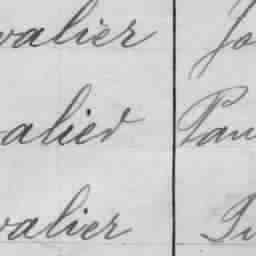 valier Jo
alier Pau
valier